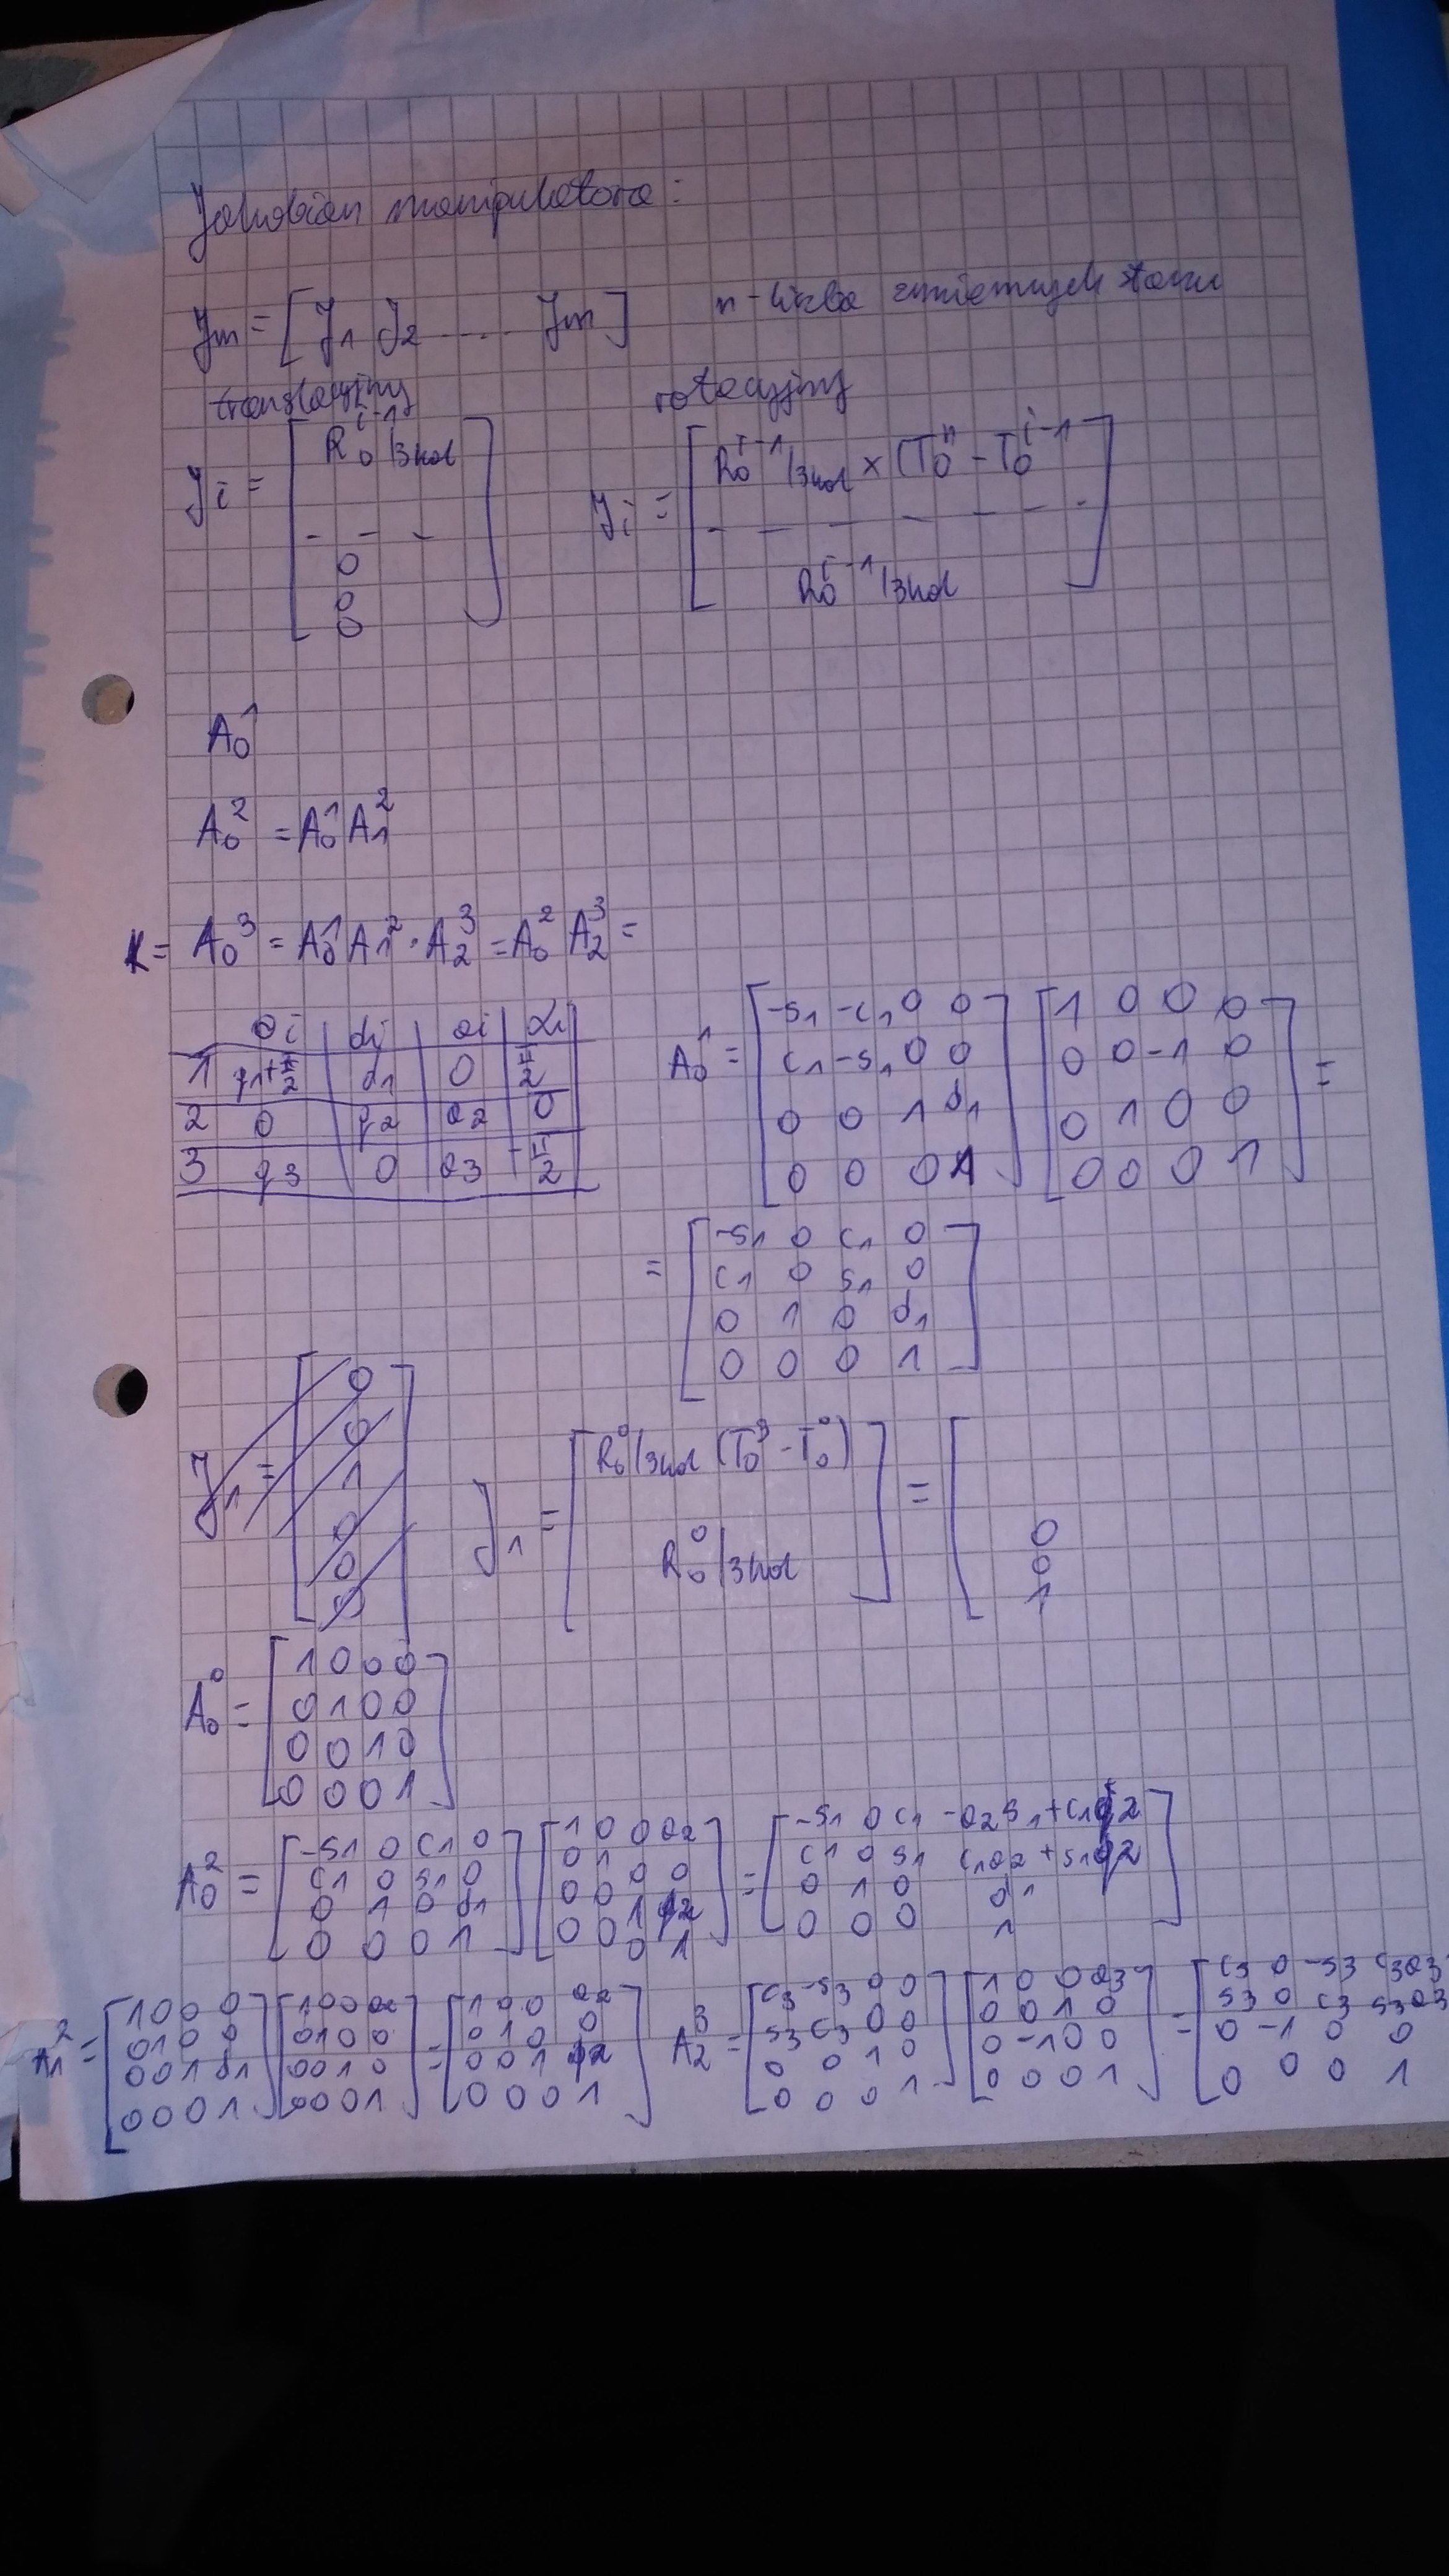 Jakobian manipulatora:
Jm = [J1 J2 .... Jm] n-liczba zmiennych stanu
translacyjny rotacyjny
Ji = [R0^i-1/3kol --- 0 0 0] Ji = [R0^i-1/3kol × (T0^n - T0^i-1 --- R0^i-1/3kol]
A0^1
A0^2 = A0^1 A1^2
K = A0^3 = A0^1 A1^2 · A2^3 = A0^2 A2^3 =
θi | di | ai | αi
1 | q1+π/2 | d1 | 0 | π/2
2 | 0 | q2 | a2 | 0
3 | q3 | 0 | a3 | -π/2
A0^1 = [-s1 -c1 0 0
c1 -s1 0 0
0 0 1 d1
0 0 0 1] [1 0 0 0
0 0 -1 0
0 1 0 0
0 0 0 1] =
= [-s1 0 c1 0
c1 0 s1 0
0 1 0 d1
0 0 0 1]
J1 = [0
0
1
0
0
0]
J1 = [R0^0/3kol (T0^3 - T0^0)
R0^0/3kol] = [
0
0
1
A0^0 = [1 0 0 0
0 1 0 0
0 0 1 0
0 0 0 1]
A0^2 = [-s1 0 c1 0
c1 0 s1 0
0 1 0 d1
0 0 0 1] [1 0 0 a2
0 1 0 0
0 0 1 q2
0 0 0 1] = [-s1 0 c1 -a2s1+c1q2
c1 0 s1 c1a2+s1q2
0 1 0 d1
0 0 0 1]
A1^2 = [1 0 0 0
0 1 0 0
0 0 1 d1
0 0 0 1] [1 0 0 a2
0 1 0 0
0 0 1 0
0 0 0 1] = [1 0 0 a2
0 1 0 0
0 0 1 q2
0 0 0 1]
A2^3 = [c3 -s3 0 0
s3 c3 0 0
0 0 1 0
0 0 0 1] [1 0 0 a3
0 0 1 0
0 -1 0 0
0 0 0 1] = [c3 0 -s3 c3a3
s3 0 c3 s3a3
0 -1 0 0
0 0 0 1